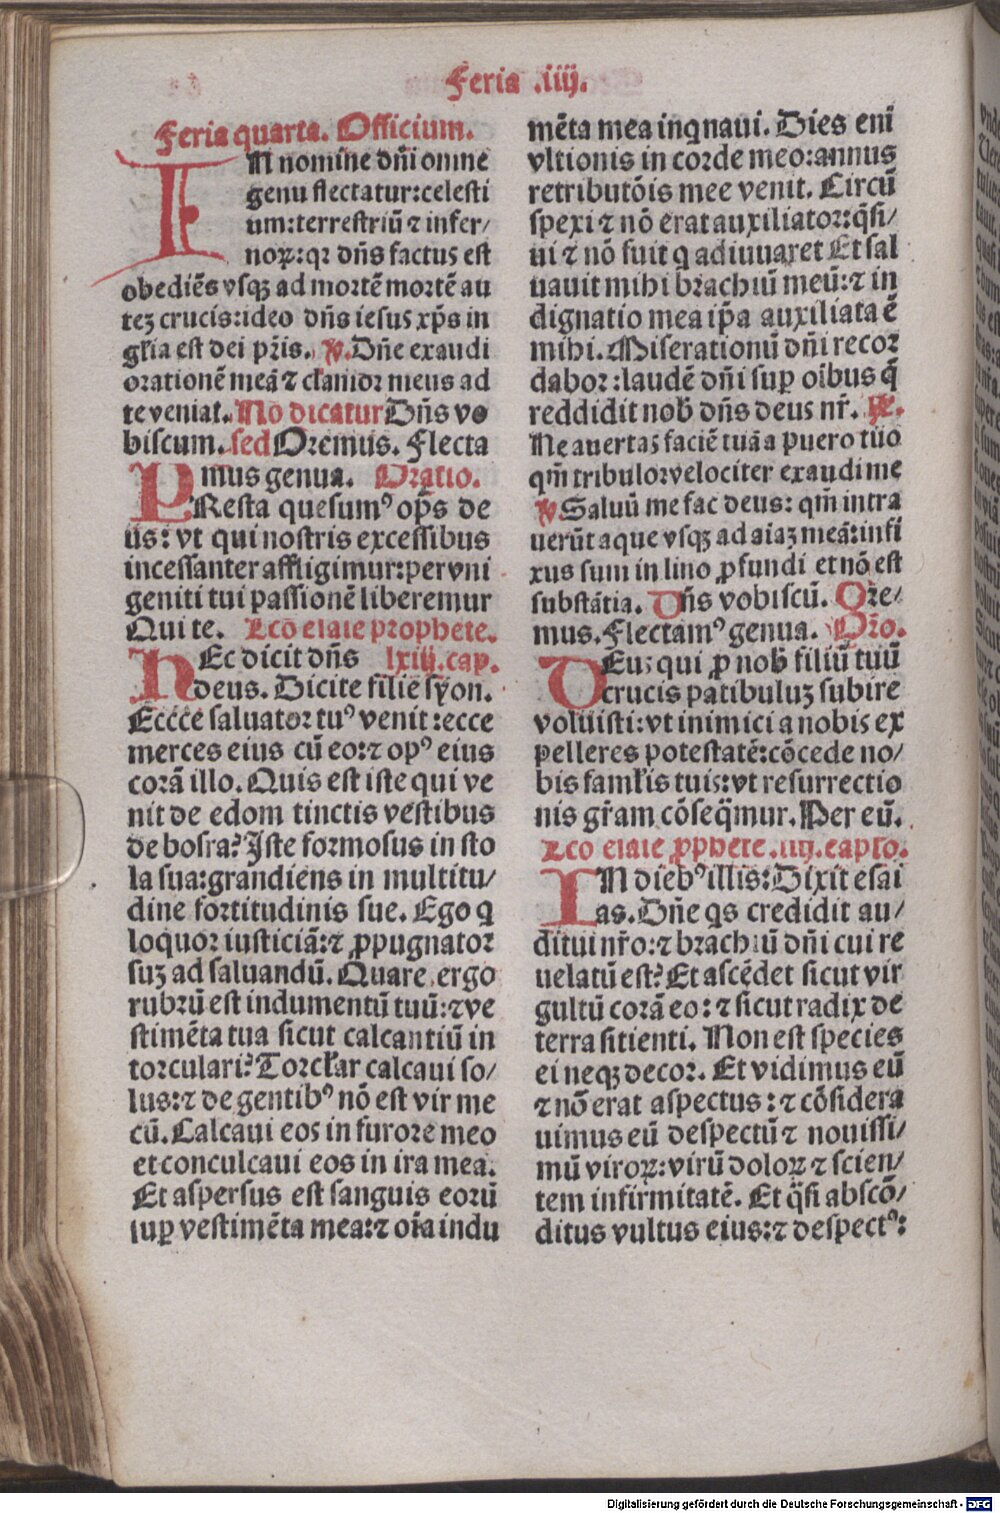 Feria .iiij.
Feria quarta. Officium.
IN nomine dñi omne
genu flectatur:celesti
um:terrestriũ ⁊ infer/
noꝝ:qꝛ dñs factus est
obediẽs vsqꝫ ad moꝛtẽ moꝛtẽ au
teꝫ crucis:ideo dñs iesus xp̃s in
gl̃ia est dei pr̃is. ℣. Dñe exaudi
oꝛationẽ meã ⁊ clamoꝛ meus ad
te veniat. Nõ dicatur Dñs vo
biscum. sed Oremus. Flecta
mus genua. Oratio.
PResta quesumꝰ op̃s de
us: vt qui nostris excessibus
incessanter affligimur:per vni
geniti tui passionẽ liberemur
Qui te. Lcõ esaie pꝛophete.
HEc dicit dñs lxiij. cap.
deus. Dicite filie syon.
Eccce saluatoꝛ tuꝰ venit:ecce
merces eius cũ eo:⁊ opꝰ eius
coꝛã illo. Quis est iste qui ve
nit de edom tinctis vestibus
de bosra? Iste foꝛmosus in sto
la sua:grandiens in multitu/
dine foꝛtitudinis sue. Ego q
loquoꝛ iusticiã:⁊ ꝓpugnatoꝛ
suꝫ ad saluandũ. Quare ergo
rubꝛũ est indumentũ tuũ:⁊ ve
stimẽta tua sicut calcantiũ in
toꝛculari? Toꝛcl̃ar calcaui so/
lus:⁊ de gentibꝰ nõ est vir me
cũ. Calcaui eos in furoꝛe meo
et conculcaui eos in ira mea.
Et aspersus est sanguis eoꝛũ
suꝑ vestimẽta mea:⁊ oĩa indu
mẽta mea inqnaui. Dies enĩ
vltionis in coꝛde meo:annus
retributõis mee venit. Circũ
spexi ⁊ nõ erat auxiliatoꝛ:q̃si/
ui ⁊ nõ fuit q adiuuaret Et sal
uauit mihi bꝛachiũ meũ:⁊ in
dignatio mea ip̃a auxiliata ẽ
mihi. Miserationũ dñi recoꝛ
daboꝛ:laudẽ dñi suꝑ oĩbus q̃
reddidit nob̃ dñs deus nr̃. ℟.
Ne auertas faciẽ tuã a puero tuo
qm̃ tribuloꝛ velociter exaudi me
℣ Saluũ me fac deus: qm̃ intra
uerũt aque vsqꝫ ad aĩaꝫ meã:infi
xus sum in limo ꝓfundi et nõ est
substãtia. Dñs vobiscũ. Oꝛe/
mus. Flectamꝰ genua. Oꝛo.
DEus qui ꝓ nob̃ filiũ tuũ
crucis patibuluꝫ subire
voluisti:vt inimici a nobis ex
pelleres potestatẽ:cõcede no/
bis faml̃is tuis:vt resurrectio
nis gr̃am cõseq̃mur. Per eũ.
Lcõ esaie ꝓphete .liij. capl̃o.
IN diebꝰ illis: Dixit esai
as. Dñe qs credidit au/
ditui nr̃o:⁊ bꝛachiũ dñi cui re
uelatũ est? Et ascẽdet sicut vir
gultũ coꝛã eo:⁊ sicut radix de
terra sitienti. Non est species
ei neqꝫ decoꝛ. Et vidimus eũ
⁊ nõ erat aspectus:⁊ cõsidera
uimus eũ despectũ ⁊ nouissi/
mũ viroꝝ:virũ doloꝝ ⁊ scien/
tem infirmitatẽ. Et q̃si abscõ/
ditus vultus eius:⁊ despectꝰ:
Digitalisierung gefördert durch die Deutsche Forschungsgemeinschaft - DFG